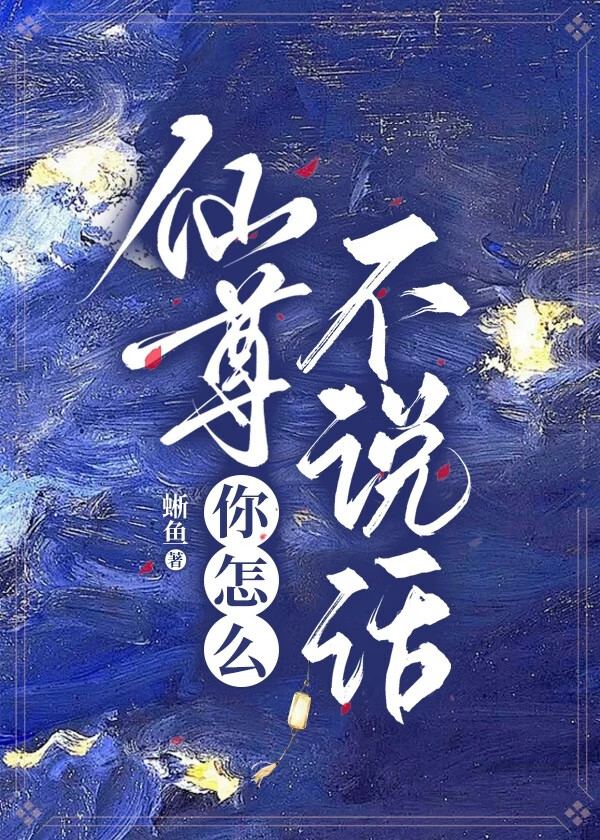 仙尊你怎么
不说话
蜥鱼著